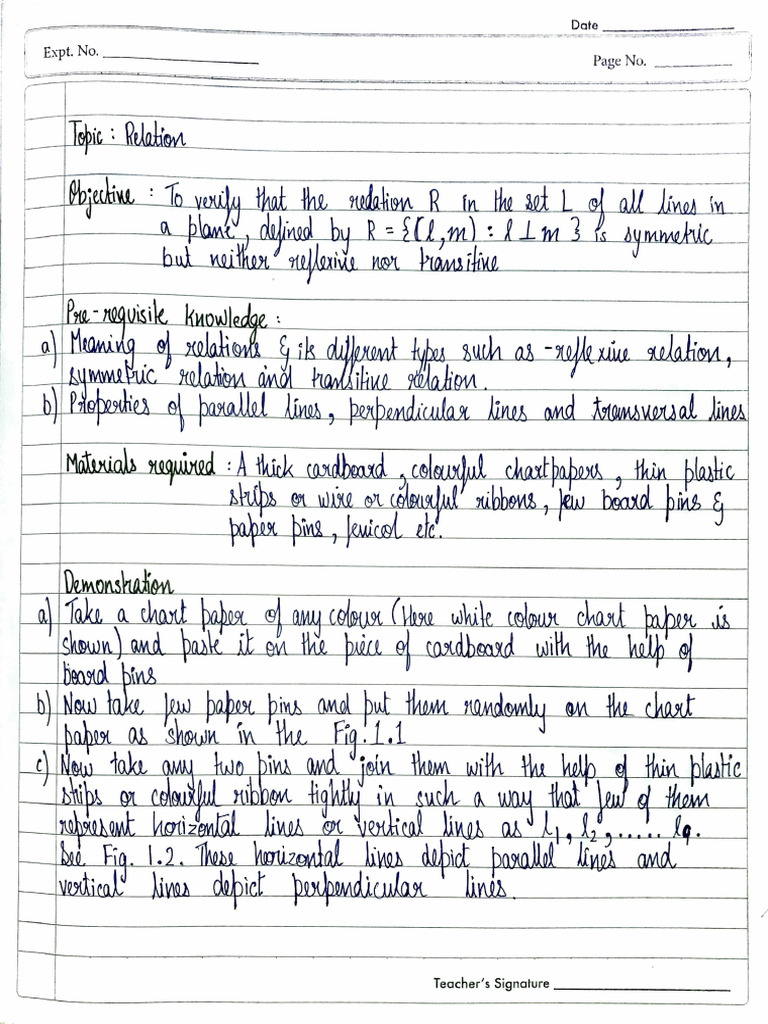 Date
Expt. No.
Page No.
Topic : Relation
Objective : To verify that the relation R in the set L of all lines in
a plane, defined by R = {(l,m) : l ⊥ m } is symmetric
but neither reflexive nor transitive
Pre-requisite knowledge :
a) Meaning of relations & its different types such as -reflexive relation,
symmetric relation and transitive relation.
b) Properties of parallel lines, perpendicular lines and transversal lines
Materials required : A thick cardboard, colourful chartpapers, thin plastic
strips or wire or colourful ribbons, few board pins &
paper pins, fevicol etc.
Demonstration
a) Take a chart paper of any colour (Here white colour chart paper is
shown) and paste it on the piece of cardboard with the help of
board pins
b) Now take few paper pins and put them randomly on the chart
paper as shown in the Fig. 1.1
c) Now take any two pins and join them with the help of thin plastic
strips or colourful ribbon tightly in such a way that few of them
represent horizontal lines or vertical lines as l₁, l₂, ..... l₉.
See Fig. 1.2. These horizontal lines depict parallel lines and
vertical lines depict perpendicular lines.
Teacher's Signature